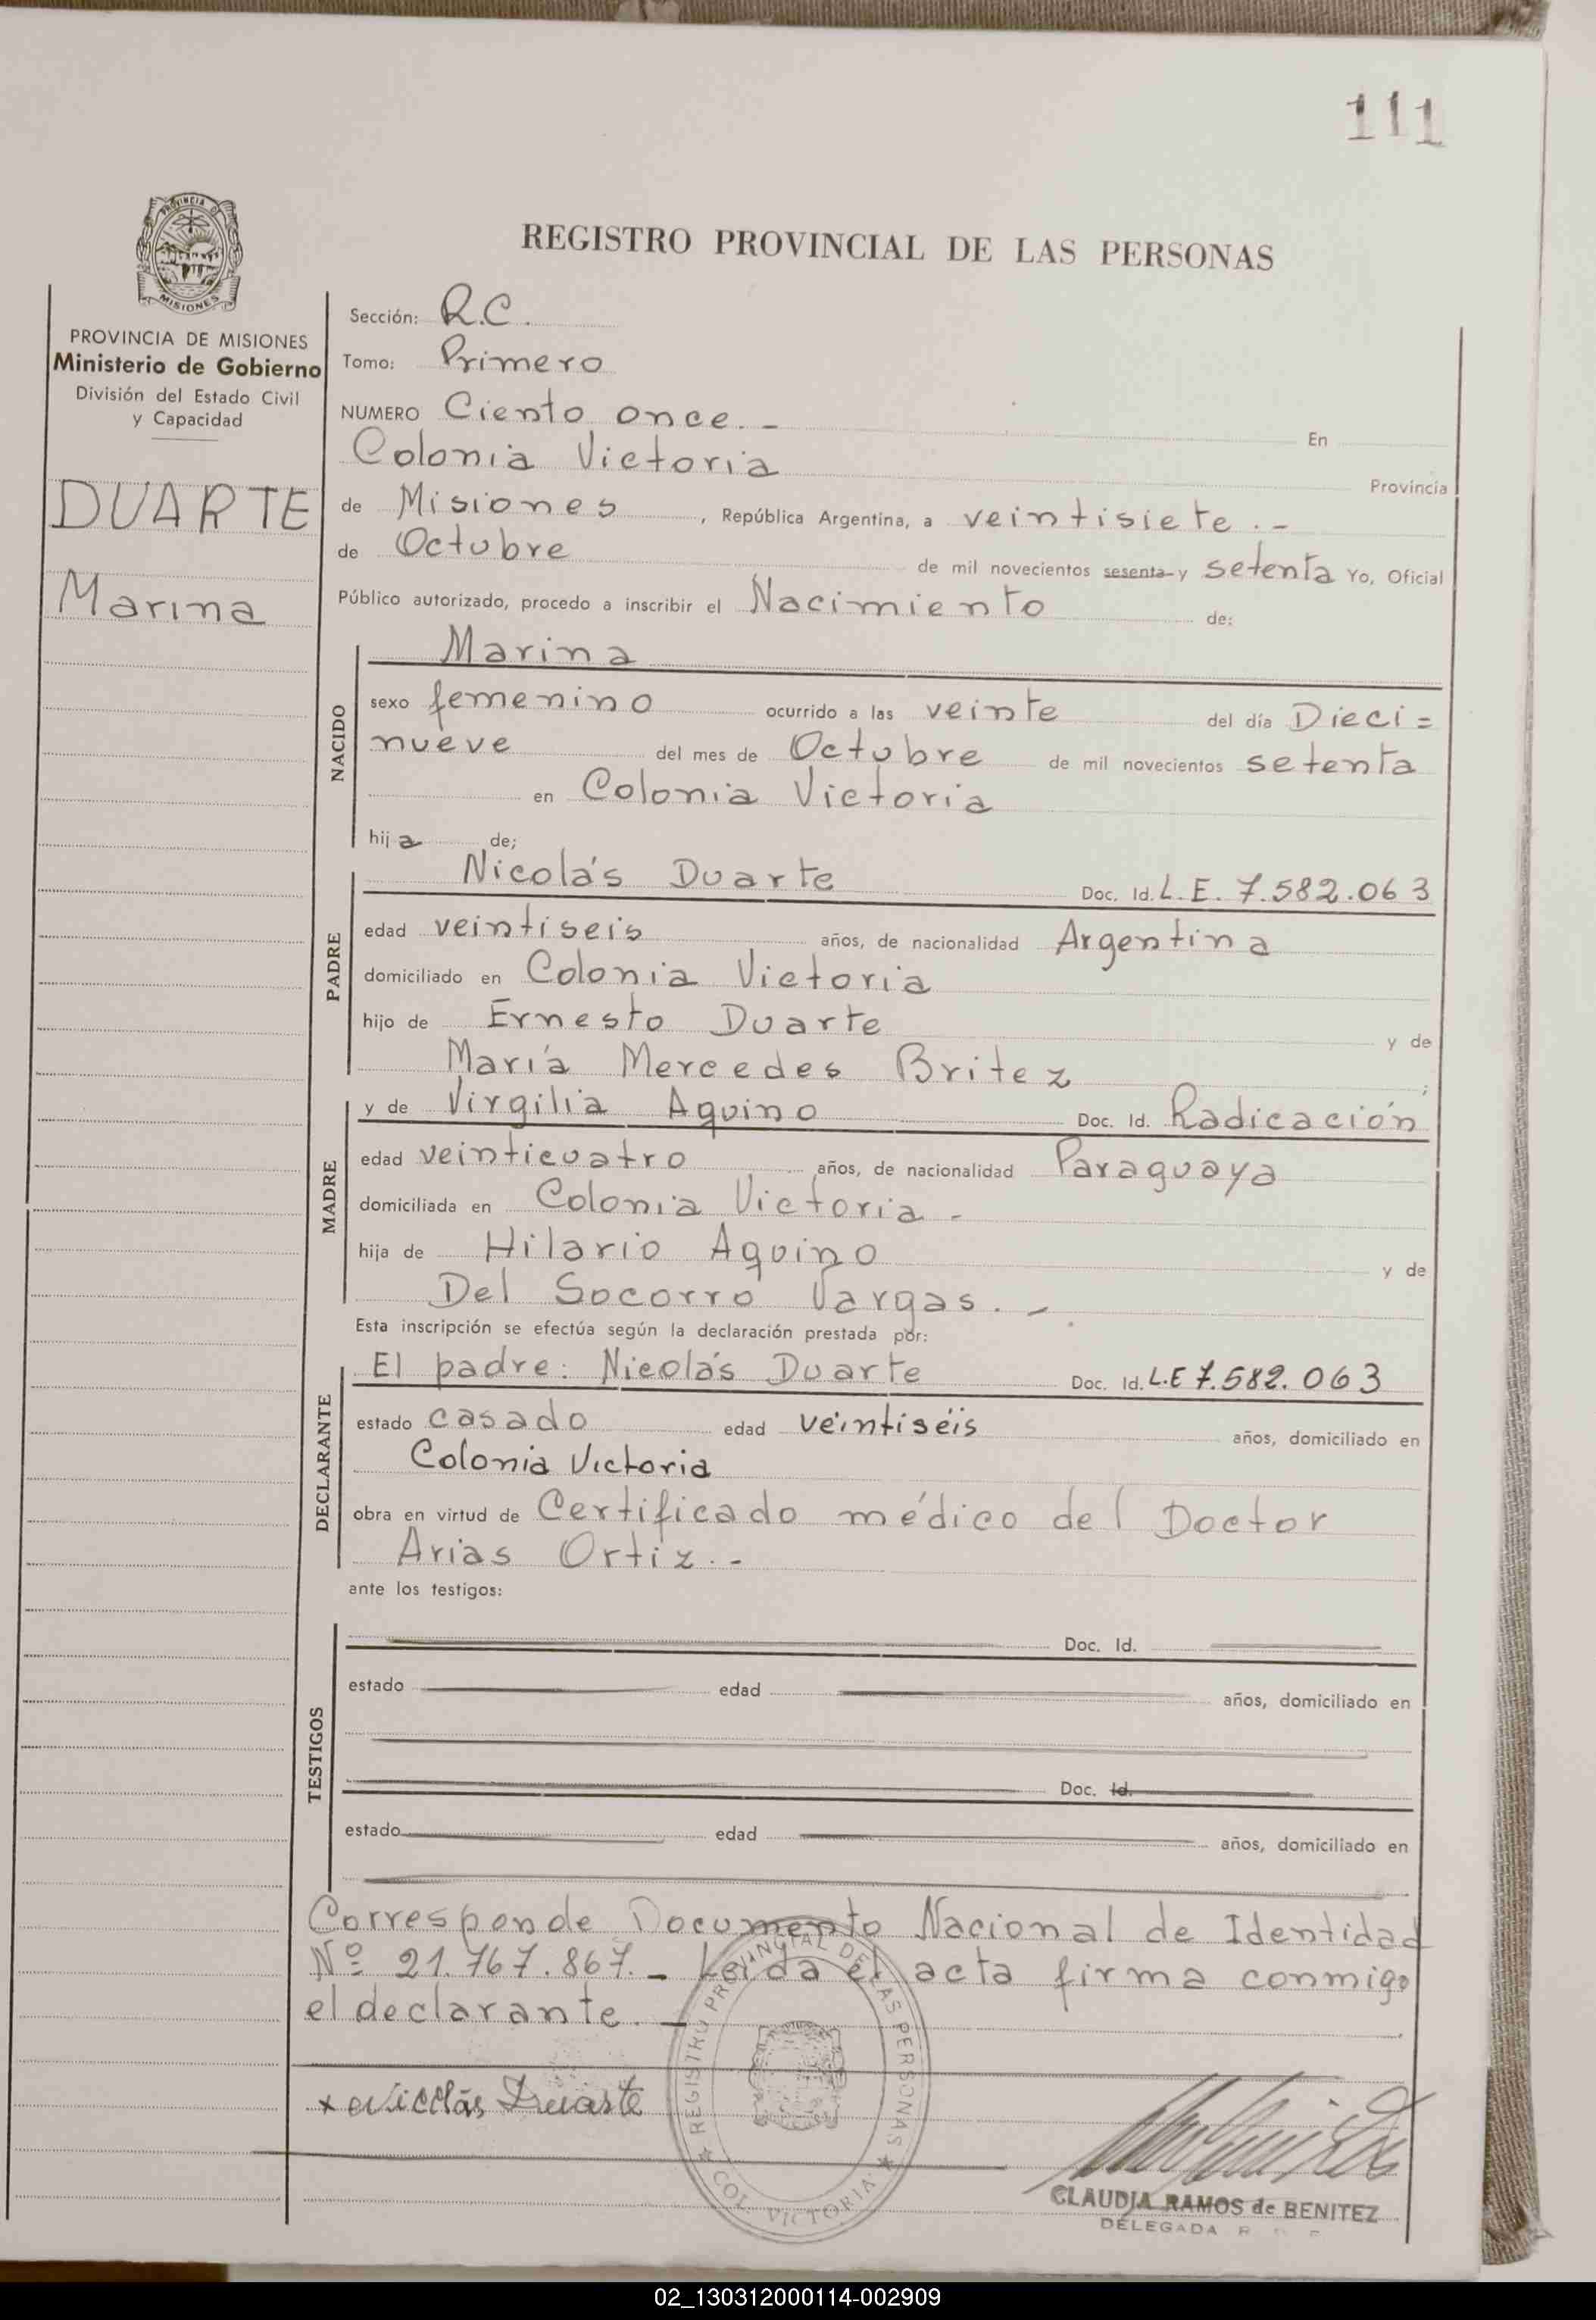 111
PROVINCIA
MISIONES
REGISTRO PROVINCIAL DE LAS PERSONAS
PROVINCIA DE MISIONES
Ministerio de Gobierno
División del Estado Civil
y Capacidad
DUARTE
Marina
Sección: R.C.
Tomo: Primero
NUMERO Ciento once.- En
Colonia Victoria Provincia
de Misiones, República Argentina, a veintisiete.-
de Octubre de mil novecientos sesenta y setenta Yo, Oficial
Público autorizado, procedo a inscribir el Nacimiento de:
NACIDO
Marina
sexo femenino ocurrido a las veinte del día Dieci=
nueve del mes de Octubre de mil novecientos setenta
en Colonia Victoria
hija de;
PADRE
Nicolás Duarte Doc. Id. L.E. 7.582.063
edad veintiseis años, de nacionalidad Argentina
domiciliado en Colonia Victoria
hijo de Ernesto Duarte y de
María Mercedes Britez ;
MADRE
y de Virgilia Aquino Doc. Id. Radicación
edad veinticuatro años, de nacionalidad Paraguaya
domiciliada en Colonia Victoria -
hija de Hilario Aquino y de
Del Socorro Vargas. -
Esta inscripción se efectúa según la declaración prestada por:
DECLARANTE
El padre: Nicolás Duarte Doc. Id. L.E 7.582.063
estado casado edad veintiséis años, domiciliado en
Colonia Victoria
obra en virtud de Certificado médico del Doctor
Arias Ortiz.-
ante los testigos:
TESTIGOS
Doc. Id.
estado edad años, domiciliado en
Doc. Id.
estado edad años, domiciliado en
Corresponde Documento Nacional de Identidad
Nº 21.767.867.- Leída el acta firma conmigo
el declarante. -
x Nicolás Duarte
REGISTRO PROVINCIAL DE LAS PERSONAS
COL. VICTORIA
CLAUDIA RAMOS de BENITEZ
DELEGADA
02_130312000114-002909